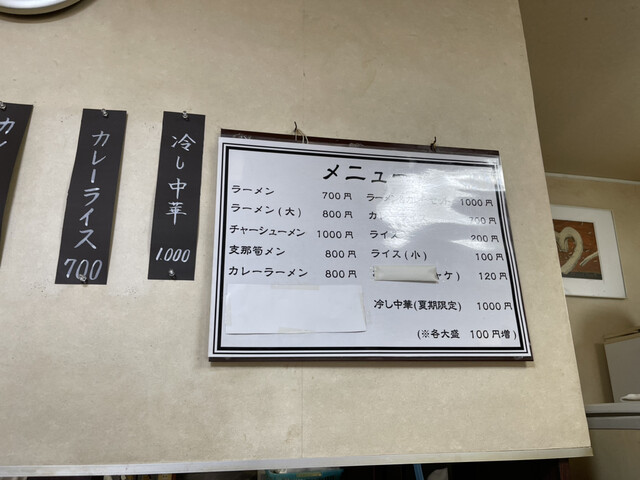 カレーライス
700
冷し中華
1.000
メニュー
ラーメン 700円
ラーメン(大) 800円
チャーシューメン 1000円
支那筍メン 800円
カレーラーメン 800円
ラー 1000円
カ 700円
ライス 200円
ライス(小) 100円
ャケ) 120円
冷し中華(夏期限定) 1000円
(※各大盛 100円増)